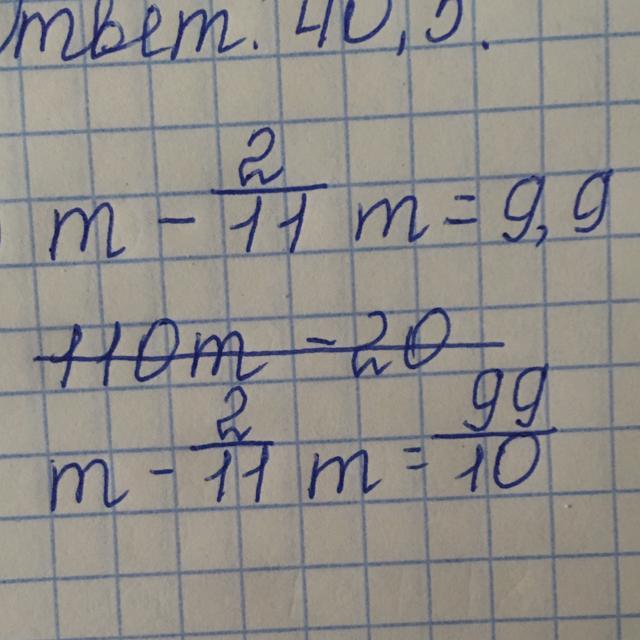 Ответ: 40,5.
m - 2/11 m = 9,9
110m - 20
m - 2/11 m = 99/10